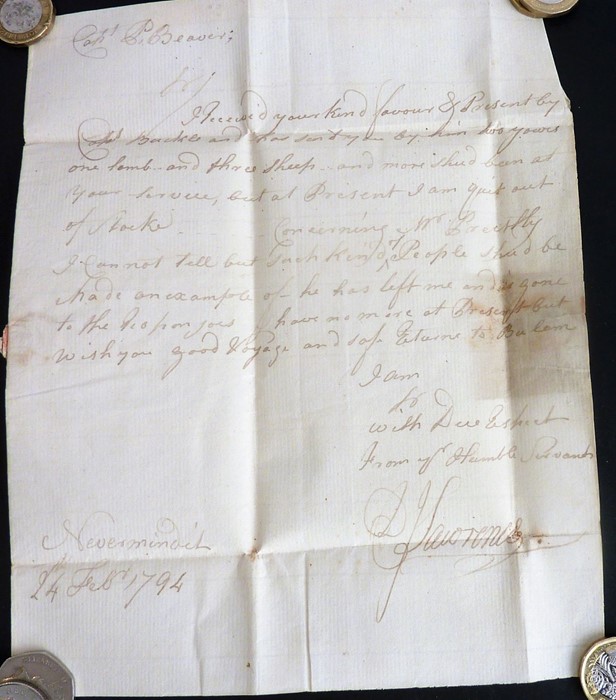 Capt P. Beaver;
Sr
I Receivd your kind favour & Present by
Capt and has send you by him two yowes
one lamb and three Sheep and more shud been at
your Service, but at Present I am quit out
of Stocke. Concerning Mr Preestly
I Cannot tell but Such Kind of People shud be
Made an example of he has left me and is gone
to the I have no more at Present but
Wish you Good Voyage and safe Returns to Bulam
I am
Sr
with Due Respect
From yr Humble Servant
J Lawrence
Nevermindit
24 Febr 1794